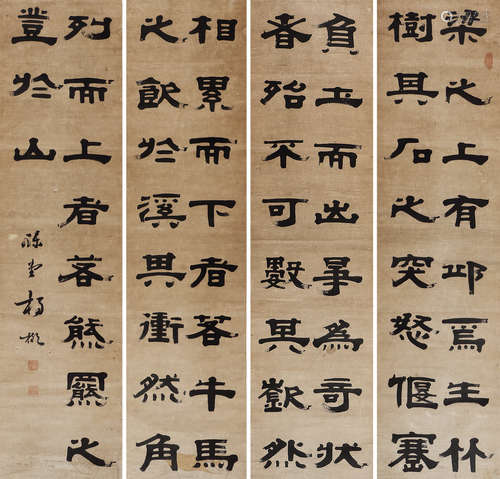 梁之上有邱焉生竹
樹其石之突怒偃蹇
負土而出爭為奇狀
者殆不可數其嶔然
相累而下者若牛馬
之飲於溪其衝然角
列而上者若熊羆之
登於山